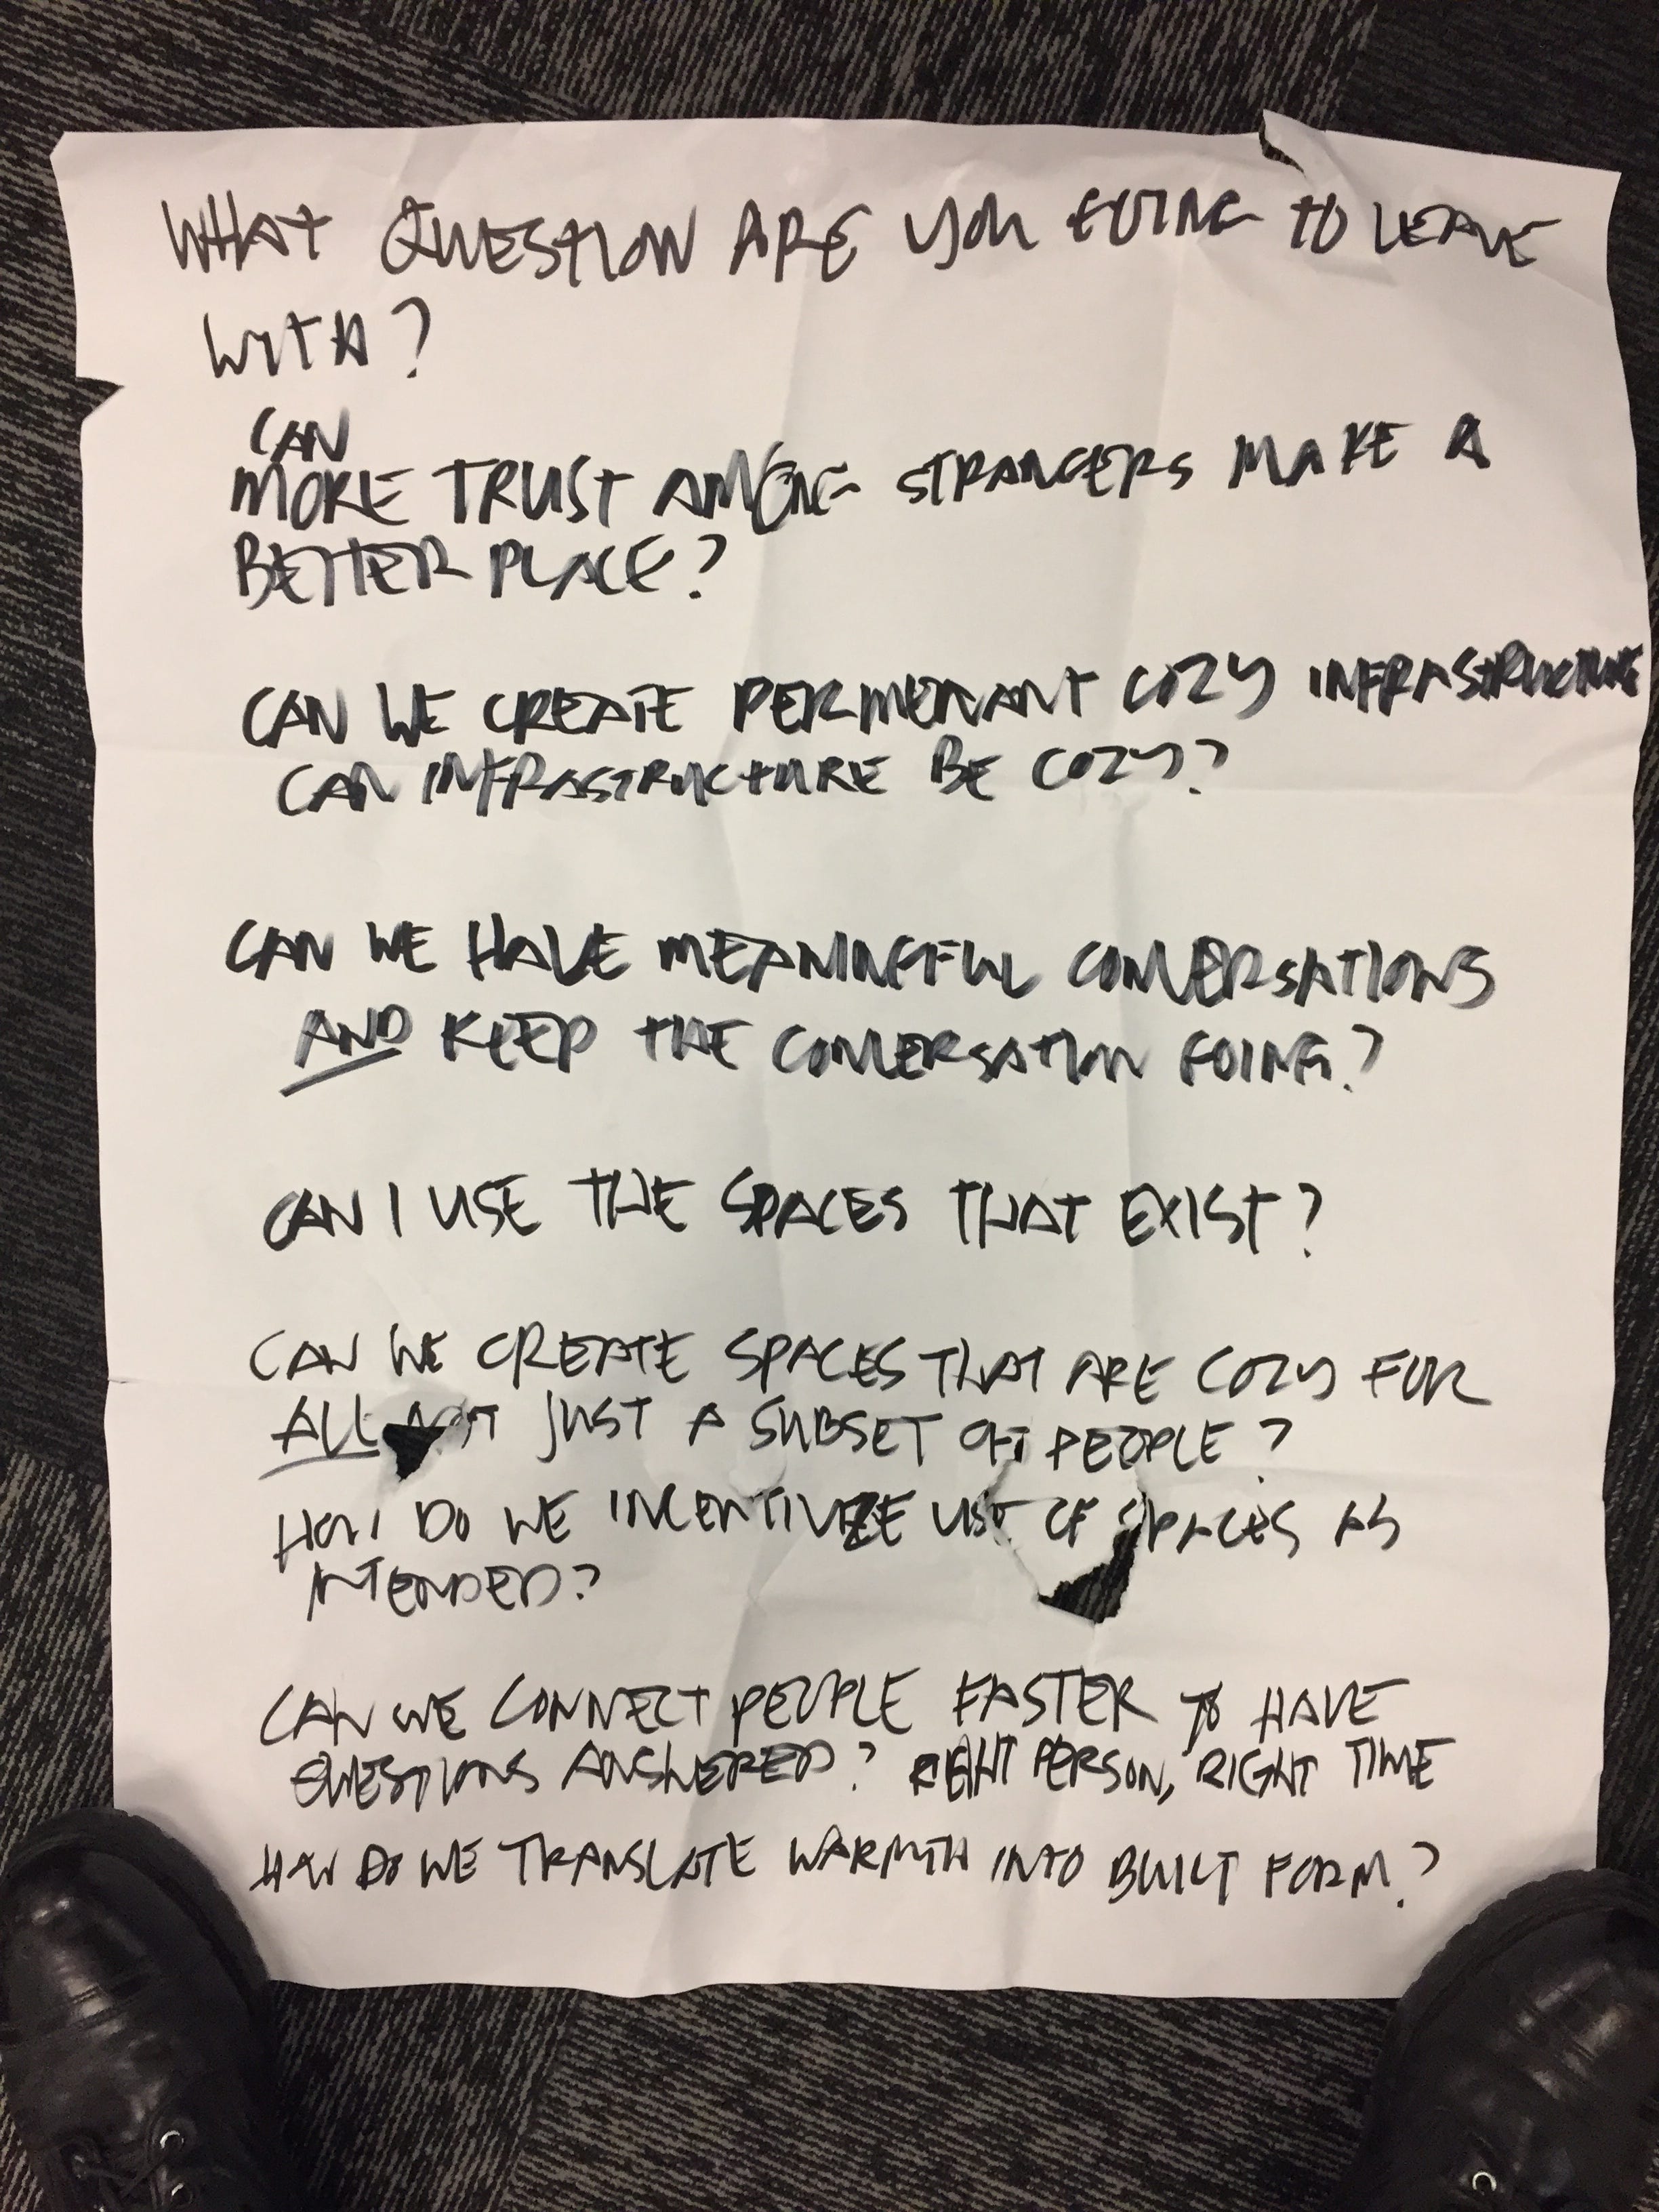 WHAT QUESTION ARE YOU GOING TO LEAVE
WITH?
CAN
MORE TRUST AMONG STRANGERS MAKE A
BETTER PLACE?
CAN WE CREATE PERMENANT COZY INFRASTRUCTURE
CAN INFRASTRUCTURE BE COZY?
CAN WE HAVE MEANINGFUL CONVERSATIONS
AND KEEP THE CONVERSATION GOING?
CAN I USE THE SPACES THAT EXIST?
CAN WE CREATE SPACES THAT ARE COZY FOR
ALL NOT JUST A SUBSET OF PEOPLE?
HOW DO WE INCENTIVIZE USE OF SPACES AS
INTENDED?
CAN WE CONNECT PEOPLE FASTER TO HAVE
QUESTIONS ANSWERED? RIGHT PERSON, RIGHT TIME
HOW DO WE TRANSLATE WARMTH INTO BUILT FORM?